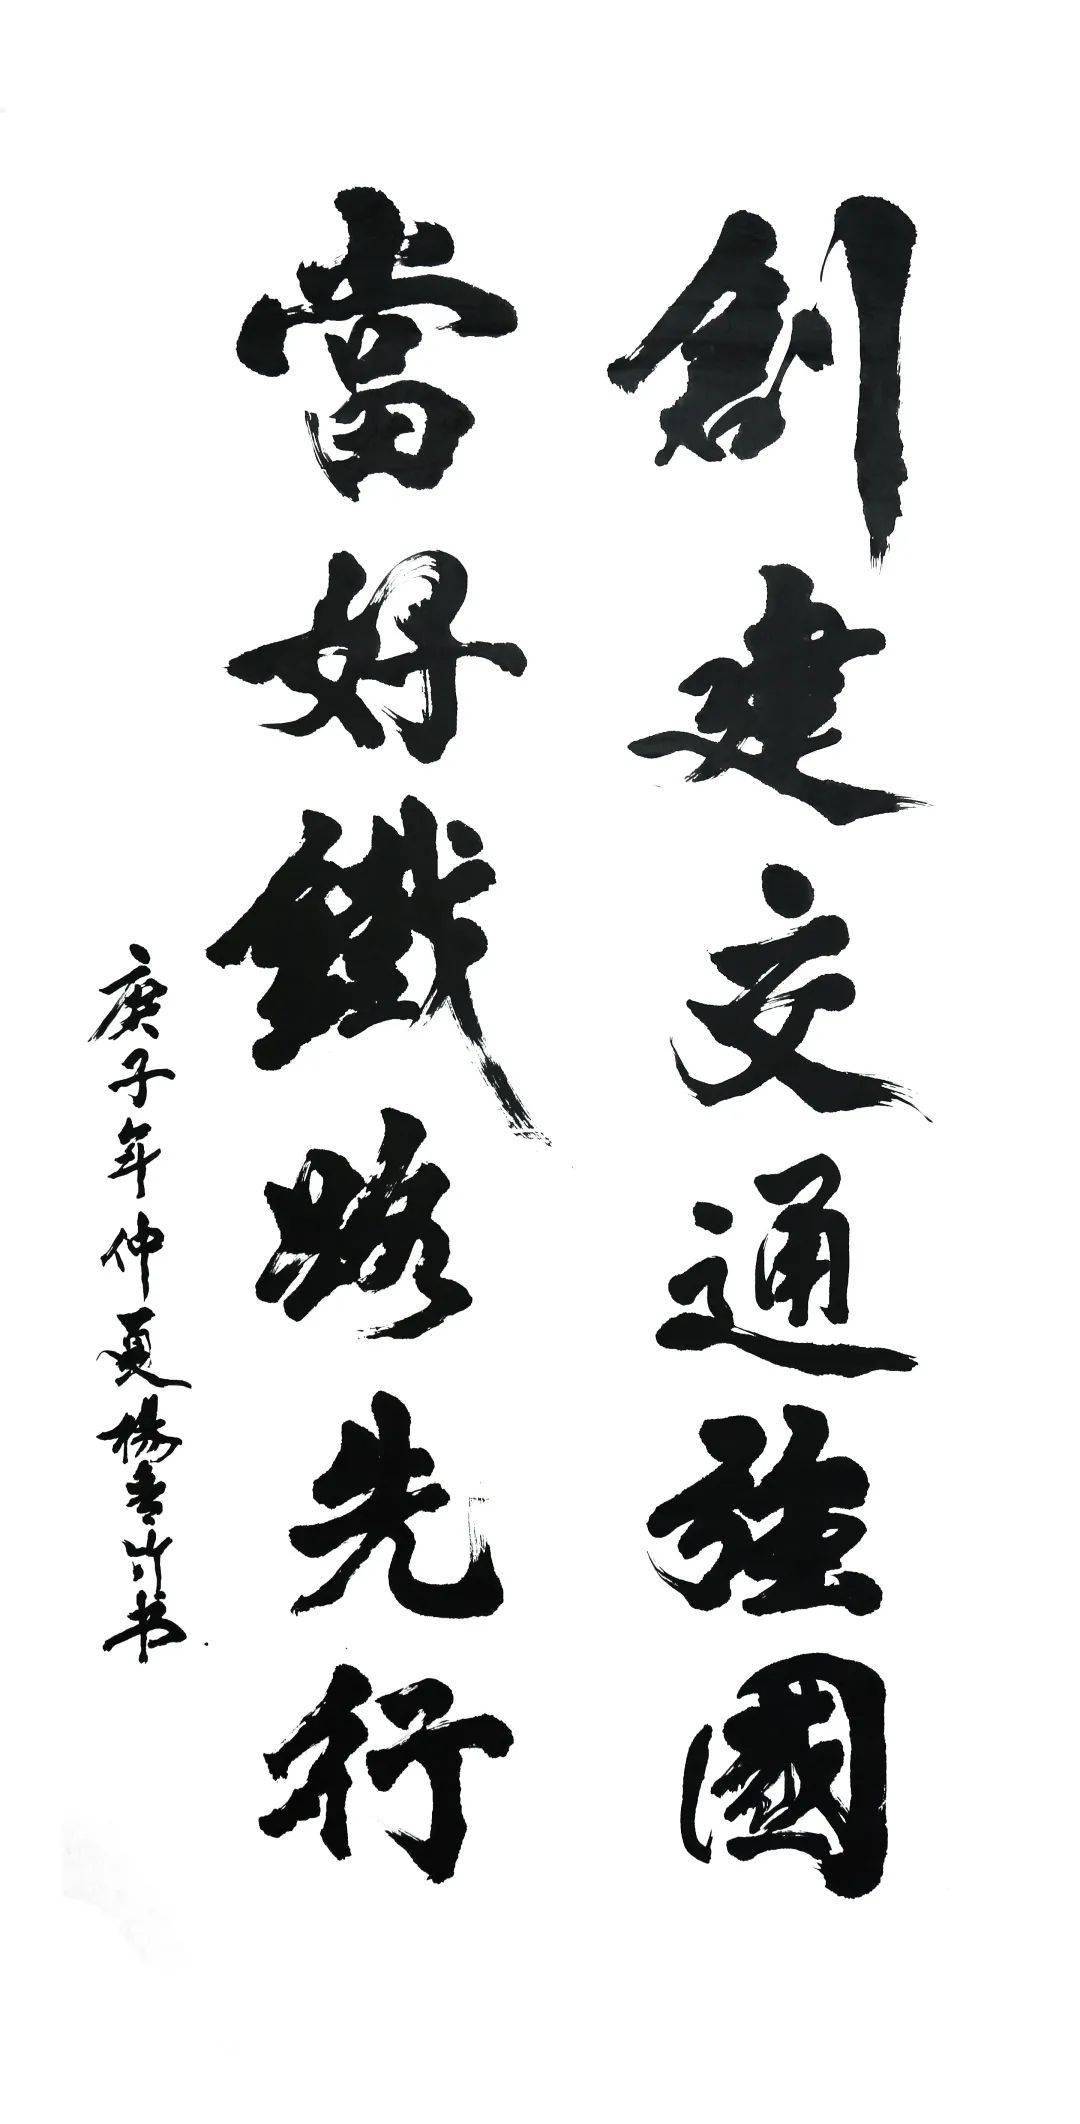 創建交通強國
當好鐵路先行
庚子年仲夏楊春竹书